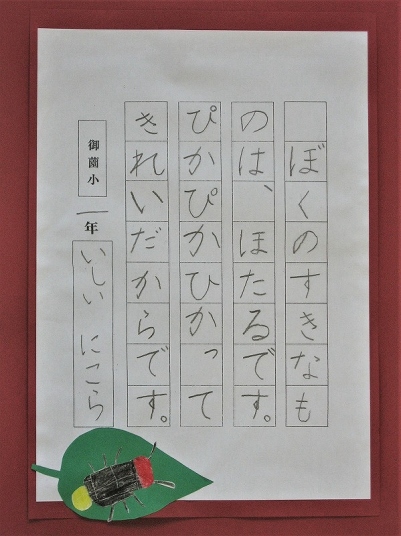 ぼくのすきなも
のは、ほたるです。
ぴかぴかひかって
きれいだからです。
御薗小
一年
いしい にこら